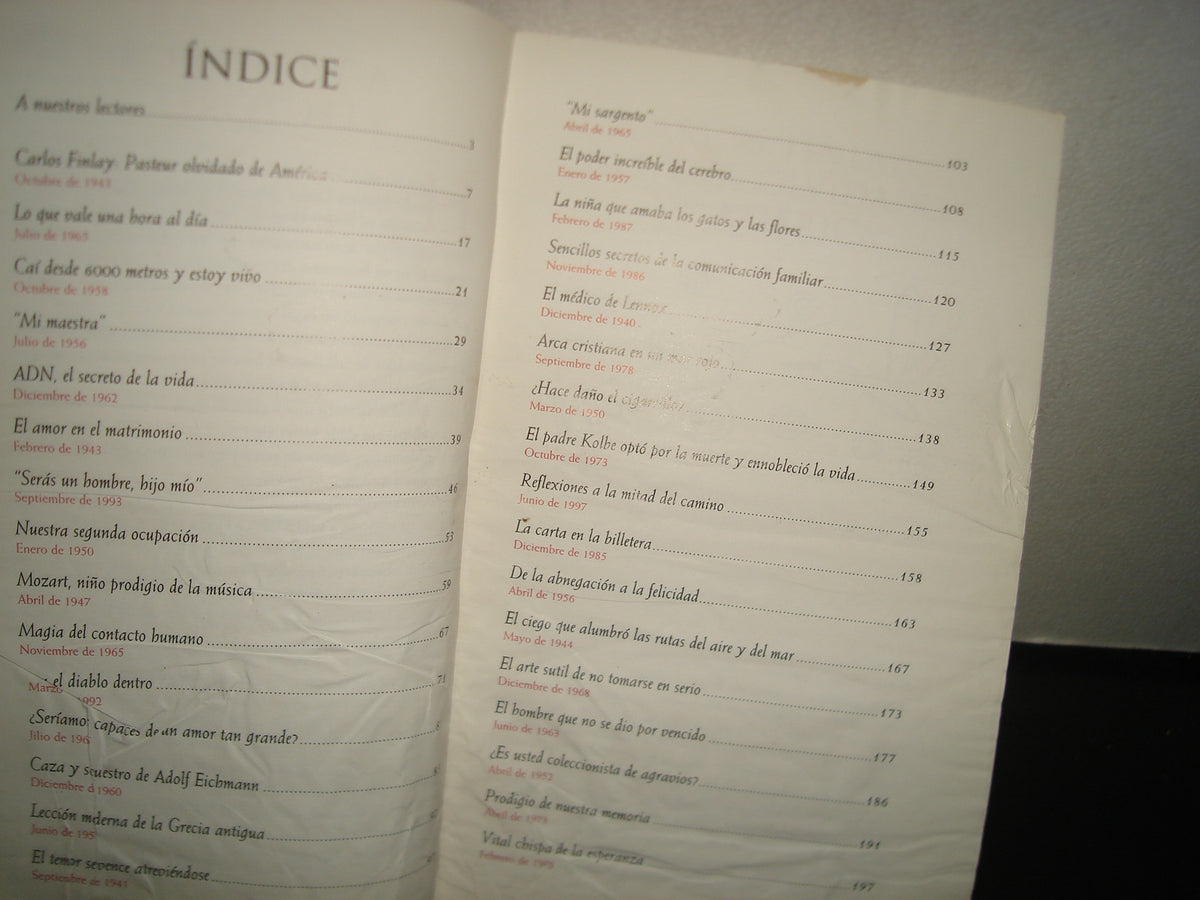 ÍNDICE
A nuestros lectores 3
Carlos Finlay: Pasteur olvidado de América 7
Octubre de 1943
Lo que vale una hora al día 17
Julio de 1965
Caí desde 6000 metros y estoy vivo 21
Octubre de 1958
"Mi maestra" 29
Julio de 1956
ADN, el secreto de la vida 34
Diciembre de 1962
El amor en el matrimonio 39
Febrero de 1943
"Serás un hombre, hijo mío" 46
Septiembre de 1993
Nuestra segunda ocupación 53
Enero de 1950
Mozart, niño prodigio de la música 59
Abril de 1947
Magia del contacto humano 67
Noviembre de 1965
el diablo dentro 71
Marzo 1992
¿Seríamos capaces de un amor tan grande?
Caza y secuestro de Adolf Eichmann
Diciembre de 1960
Lección moderna de la Grecia antigua
Junio de
El temor se vence atreviéndose
Septiembre de 1941
"Mi sargento" 103
Abril de 1965
El poder increíble del cerebro 108
Enero de 1957
La niña que amaba los gatos y las flores 115
Febrero de 1987
Sencillos secretos de la comunicación familiar 120
Noviembre de 1986
El médico de Lennox 127
Diciembre de 1940
Arca cristiana en un mar rojo 133
Septiembre de 1978
¿Hace daño el cigarrillo? 138
Marzo de 1950
El padre Kolbe optó por la muerte y ennobleció la vida 149
Octubre de 1973
Reflexiones a la mitad del camino 155
Junio de 1997
La carta en la billetera 158
Diciembre de 1985
De la abnegación a la felicidad 163
Abril de 1956
El ciego que alumbró las rutas del aire y del mar 167
Mayo de 1944
El arte sutil de no tomarse en serio 173
Diciembre de 1968
El hombre que no se dio por vencido 177
Junio de 1963
¿Es usted coleccionista de agravios? 186
Abril de 1952
Prodigio de nuestra memoria 191
Abril de
Vital chispa de la esperanza 197
Febrero de